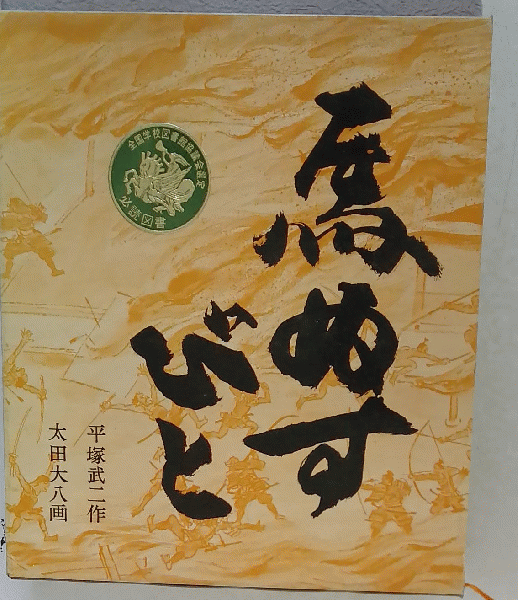 馬ぬす
びと
平塚武二作
太田大八画
全国学校図書館協議会選定
必読図書